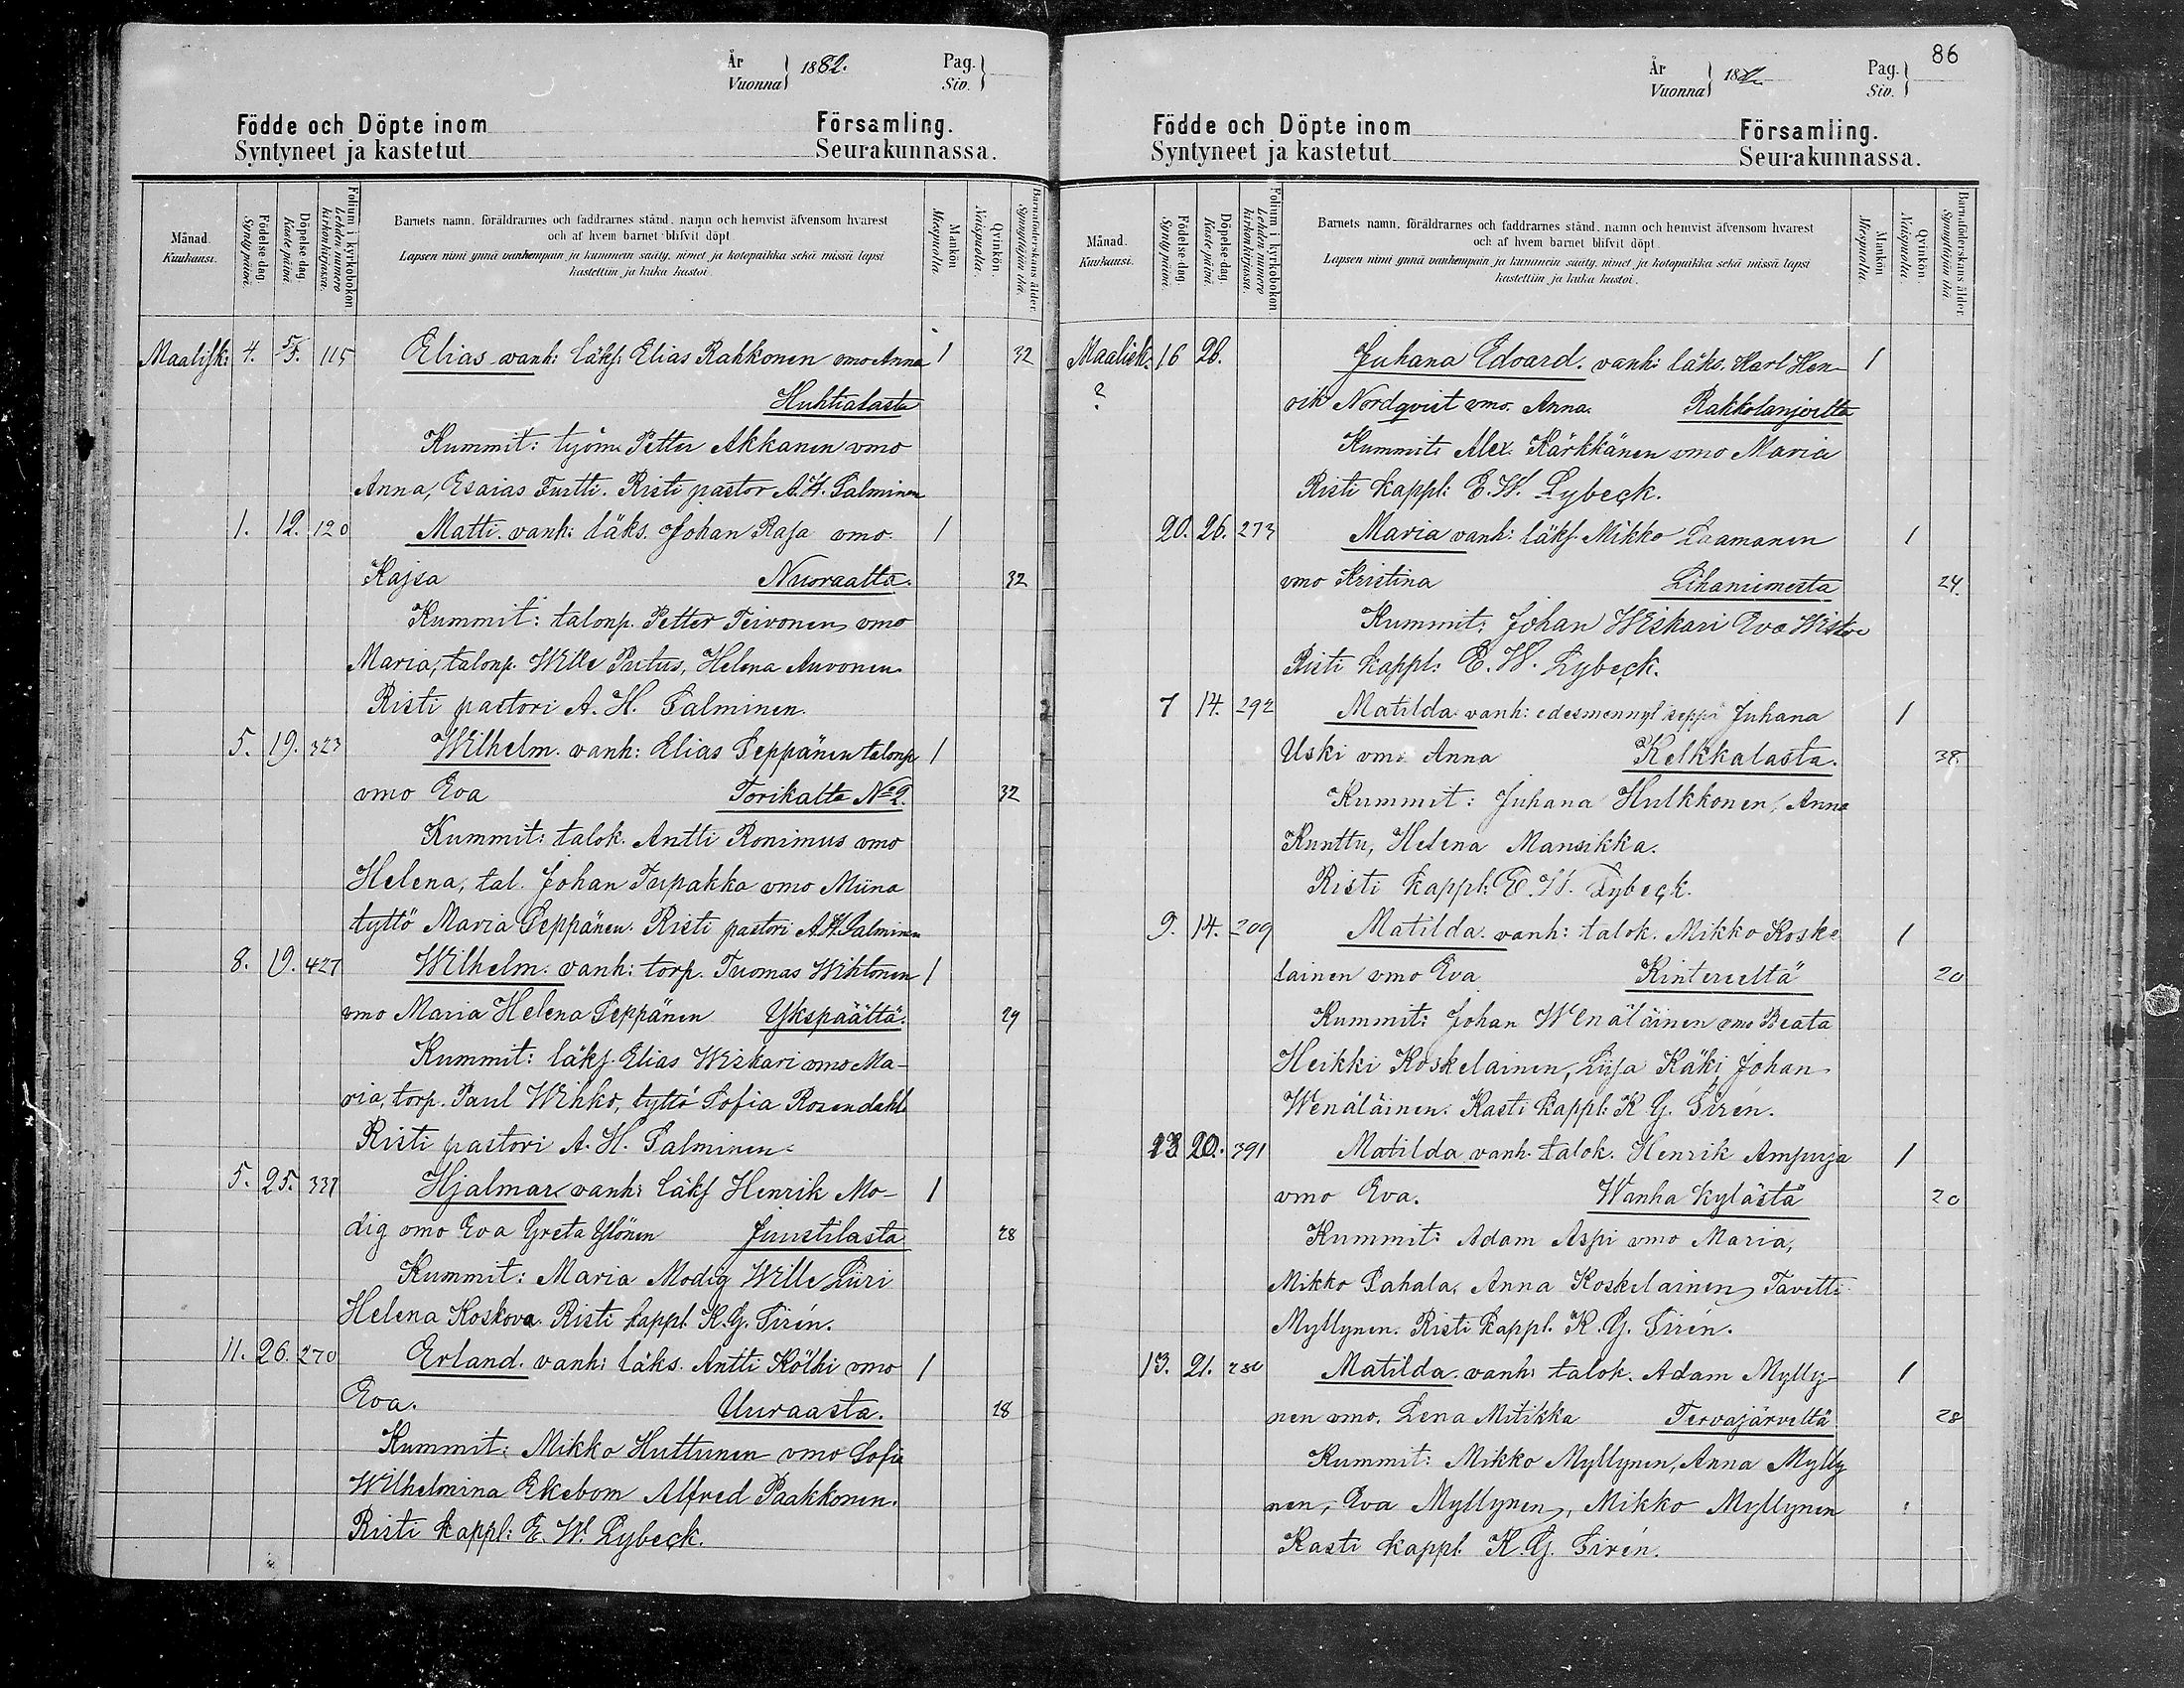 År
Vuonna 1882.
Pag.
Siv.
Födde och Döpte inom Församling.
Syntyneet ja kastetut Seurakunnassa.
Månad.
Kuukausi.
Födelse dag.
Synty päivä.
Döpelse dag.
Kaste päivä.
Folium i kyrkobokon
Lehden numero
kirkonkirjassa.
Barnets namn, föräldrarnes och faddrarnes stånd, namn och hemvist äfvensom hvarest
och af hvem barnet blifvit döpt.
Lapsen nimi ynnä vanhempain ja kummein sääty, nimet ja kotopaikka sekä missä lapsi
kastettiin ja kuka kastoi.
Mankön
Miespuolia.
Qvinkön.
Naispuolia.
Barnaföderskans ålder.
Synnyttäjän ikä.
Maalisk: 4. 5. 115 Elias vanh: läksj: Elias Rahkonen vmo Anna 1 32
Huhtialasta
Kummit: työm. Petter Akkanen vmo
Anna, Esaias Turtti. Risti pastor A. H. Salminen
1. 12. 120 Matti. vanh: läks. Johan Rasa vmo 1
Kajsa Nuoraalta. 32
Kummit: talonp. Petter Teivonen vmo
Maria, talonp. Wille Putus, Helena Auvonen
Risti pastori A. H. Salminen.
5. 19. 323 Wilhelm. vanh: Elias Seppänen talonp 1
vmo Eva Torikalta No 2. 32
Kummit: talok. Antti Ronimus vmo
Helena, tal. Johan Tupakka vmo Miina
tyttö Maria Seppänen. Risti pastori A. H. Salminen
8. 19. 427 Wilhelm. vanh: torp. Tuomas Wihtonen 1
vmo Maria Helena Seppänen Ykspäältä. 29
Kummit: läksj. Elias Wiskari vmo Ma-
ria, torp. Paul Wihko, tyttö Sofia Rosendahl
Risti pastori A. H. Salminen.
5. 25. 331 Hjalmar vanh: läksj Henrik Mo- 1
dig vmo Eva Greta Ylönen Juustilasta 28
Kummit: Maria Modig Wille Siiri
Helena Koskova. Risti kappl. K. G. Sirén.
11. 26. 270 Erland. vanh: läks. Antti Kölhi vmo 1
Eva. Uuraasta. 28
Kummit: Mikko Huttunen vmo Sofia
Wilhelmina Ekebom Alfred Paakkonen.
Risti kappl: E. W. Lybeck.
86
År
Vuonna 188
Pag.
Siv.
Födde och Döpte inom Församling.
Syntyneet ja kastetut Seurakunnassa.
Månad.
Kuukausi.
Födelse dag.
Synty päivä.
Döpelse dag.
Kaste päivä.
Folium i kyrkobokon
Lehden numero
kirkonkirjassa.
Barnets namn, föräldrarnes och faddrarnes stånd, namn och hemvist äfvensom hvarest
och af hvem barnet blifvit döpt.
Lapsen nimi ynnä vanhempain ja kummein sääty, nimet ja kotopaikka sekä missä lapsi
kastettiin ja kuka kastoi.
Mankön
Miespuolia.
Qvinkön.
Naispuolia.
Barnaföderskans ålder.
Synnyttäjän ikä.
Maalisk. 16 28. Juhana Edoard. vanh: läks. Karl Hen- 1
? rik Nordqvist vmo. Anna. Rakkolanjoelta
Kummit: Alex. Kärkkänen vmo Maria
Risti kappl: E. W. Lybeck.
20. 26. 273 Maria vanh: läksj. Mikko Laamanen 1
vmo Kristina Lihaniemestä 24.
Kummit: Johan Wiskari Eva Wiskari
Risti kappl: E. W. Lybeck.
7 14. 292 Matilda vanh: edesmennyt seppä Juhana 1
Uski vmo Anna Kelkkalasta. 38.
Kummit: Juhana Hulkkonen, Anna
Kunttu, Helena Mansikka.
Risti kappl: E. W. Lybeck.
9. 14. 209 Matilda. vanh: talok. Mikko Koske 1
lainen vmo Eva Kintereeltä 20
Kummit: Johan Wenäläinen vmo Beata
Heikki Koskelainen, Liisa Käki Johan
Wenäläinen. Kasti kappl: K G. Sirén.
13 20. 391 Matilda vanh. talok. Henrik Ampuja 1
vmo Eva. Wanha kylästä 20
Kummit: Adam Aspi vmo Maria,
Mikko Sahala, Anna Koskelainen, Tavetti
Myllynen. Risti kappl. K. G. Sirén.
13. 21. 280 Matilda. vanh: talok. Adam Mylly- 1
nen vmo. Lena Mitikka Tervajärveltä 28
Kummit: Mikko Myllynen, Anna Mylly
nen, Eva Myllynen, Mikko Myllynen
Kasti kappl. K. G. Sirén.